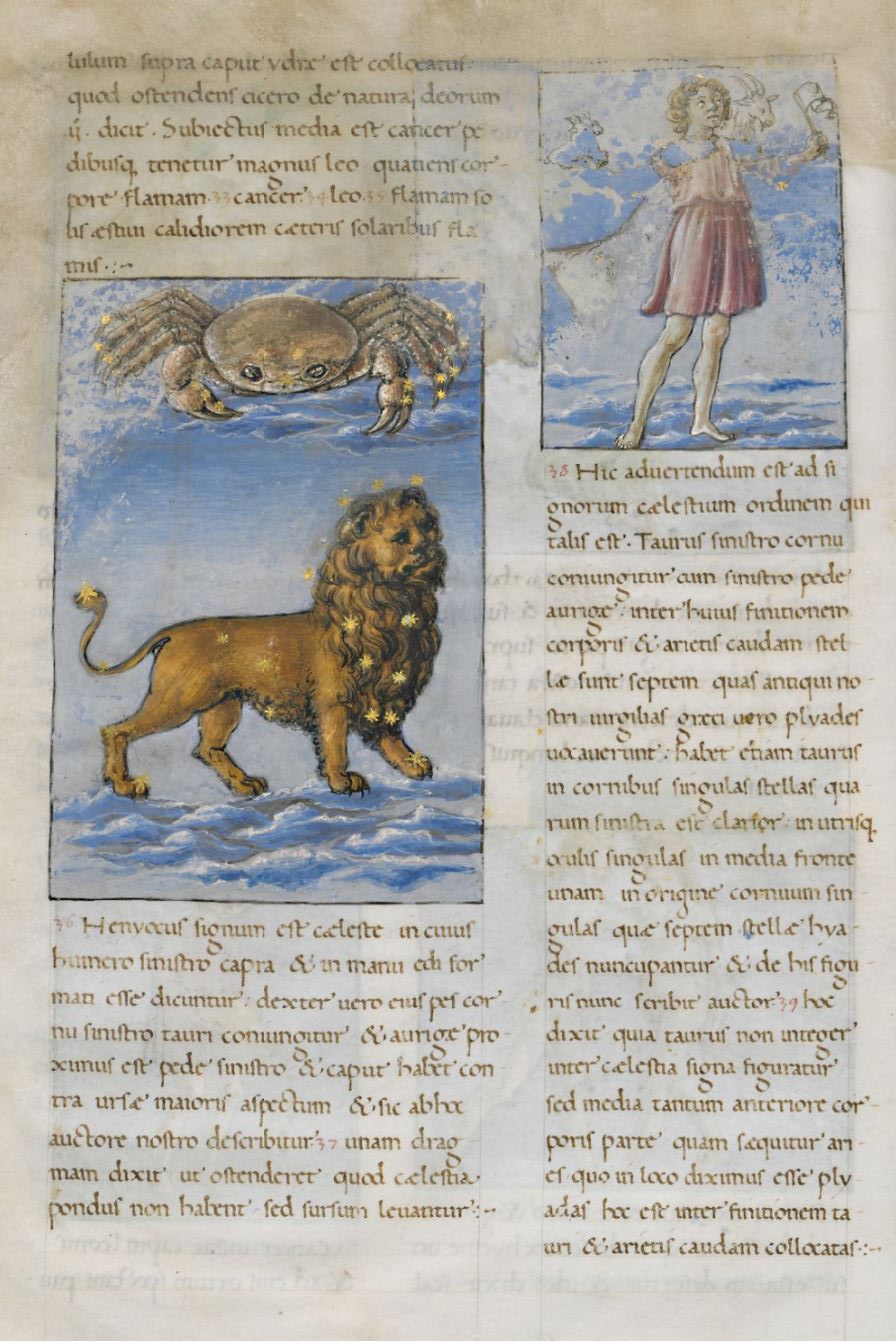 lulum supra caput ydræ est collocatus
quod ostendens cicero de natura deorum
ij. dicit. Subiectus media est cancer pe
dibusq, tenetur magnus leo quatiens cor-
pore flamam. 33 cancer. 34 leo. 35 flamam so
lis æstiui calidiorem cæteris solaribus fla
mis.:~
36 Henyocus signum est cæleste in cuius
humero sinistro capra & in manu edi for
mati esse dicuntur: dexter uero eius pes cor
nu sinistro tauri coniungitur & aurigæ pro
ximus est pede sinistro & caput habet con
tra ursæ maioris aspectum & sic ab hoc
auctore nostro describitur 37 unam drag
mam dixit ut ostenderet quod cælestia
pondus non habent sed sursum leuantur:~
38 Hic aduertendum est ad si
gnorum cælestium ordinem qui
talis est. Taurus sinistro cornu
coniungitur cum sinistro pede
aurigæ: inter huius finitionem
corporis & arietis caudam stel
læ sunt septem quas antiqui no
stri uirgilias greci uero plyades
uocauerunt: habet etiam taurus
in cornibus singulas stellas qua
rum sinistra est clarior: in utrisq,
oculis singulas in media fronte
unam in origine cornuum sin
gulas quæ septem stellæ hya
des nuncupantur & de his figu
ris nunc scribit auctor 39 hoc
dixit quia taurus non integer
inter cælestia signa figuratur
sed media tantum anteriore cor
poris parte quam sæquitur ari
es quo in loco diximus esse ply
adas hoc est inter finitionem ta
uri & arietis caudam collocatas:~